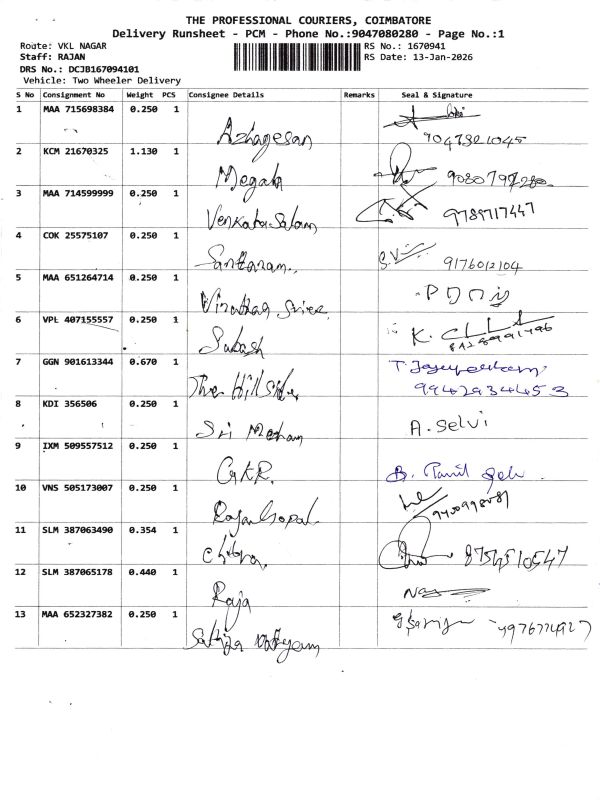 THE PROFESSIONAL COURIERS, COIMBATORE
Delivery Runsheet - PCM - Phone No.:9047080280 - Page No.:1
Route: VKL NAGAR RS No.: 1670941
Staff: RAJAN RS Date: 13-Jan-2026
DRS No.: DCJB167094101
Vehicle: Two Wheeler Delivery
S No Consignment No Weight PCS Consignee Details Remarks Seal & Signature
1 MAA 715698384 0.250 1
Azhagesan 9047321045
2 KCM 21670325 1.130 1
Megala
3 MAA 714599999 0.250 1
Venkatasalam 9789717447
4 COK 25575107 0.250 1
Santtaram S.V 9176012104
5 MAA 651264714 0.250 1
6 VPL 407155557 0.250 1
Subash K.
7 GGN 901613344 0.670 1
The Hillsider 9942934453
8 KDI 356506 0.250 1
Sri Mohan A. Selvi
9 IXM 509557512 0.250 1
GKR. B. Tamil Selvi
10 VNS 505173007 0.250 1
RajaGopal
11 SLM 387063490 0.354 1
Chitra. 8754510547
12 SLM 387065178 0.440 1
Raja
13 MAA 652327382 0.250 1
Sathya